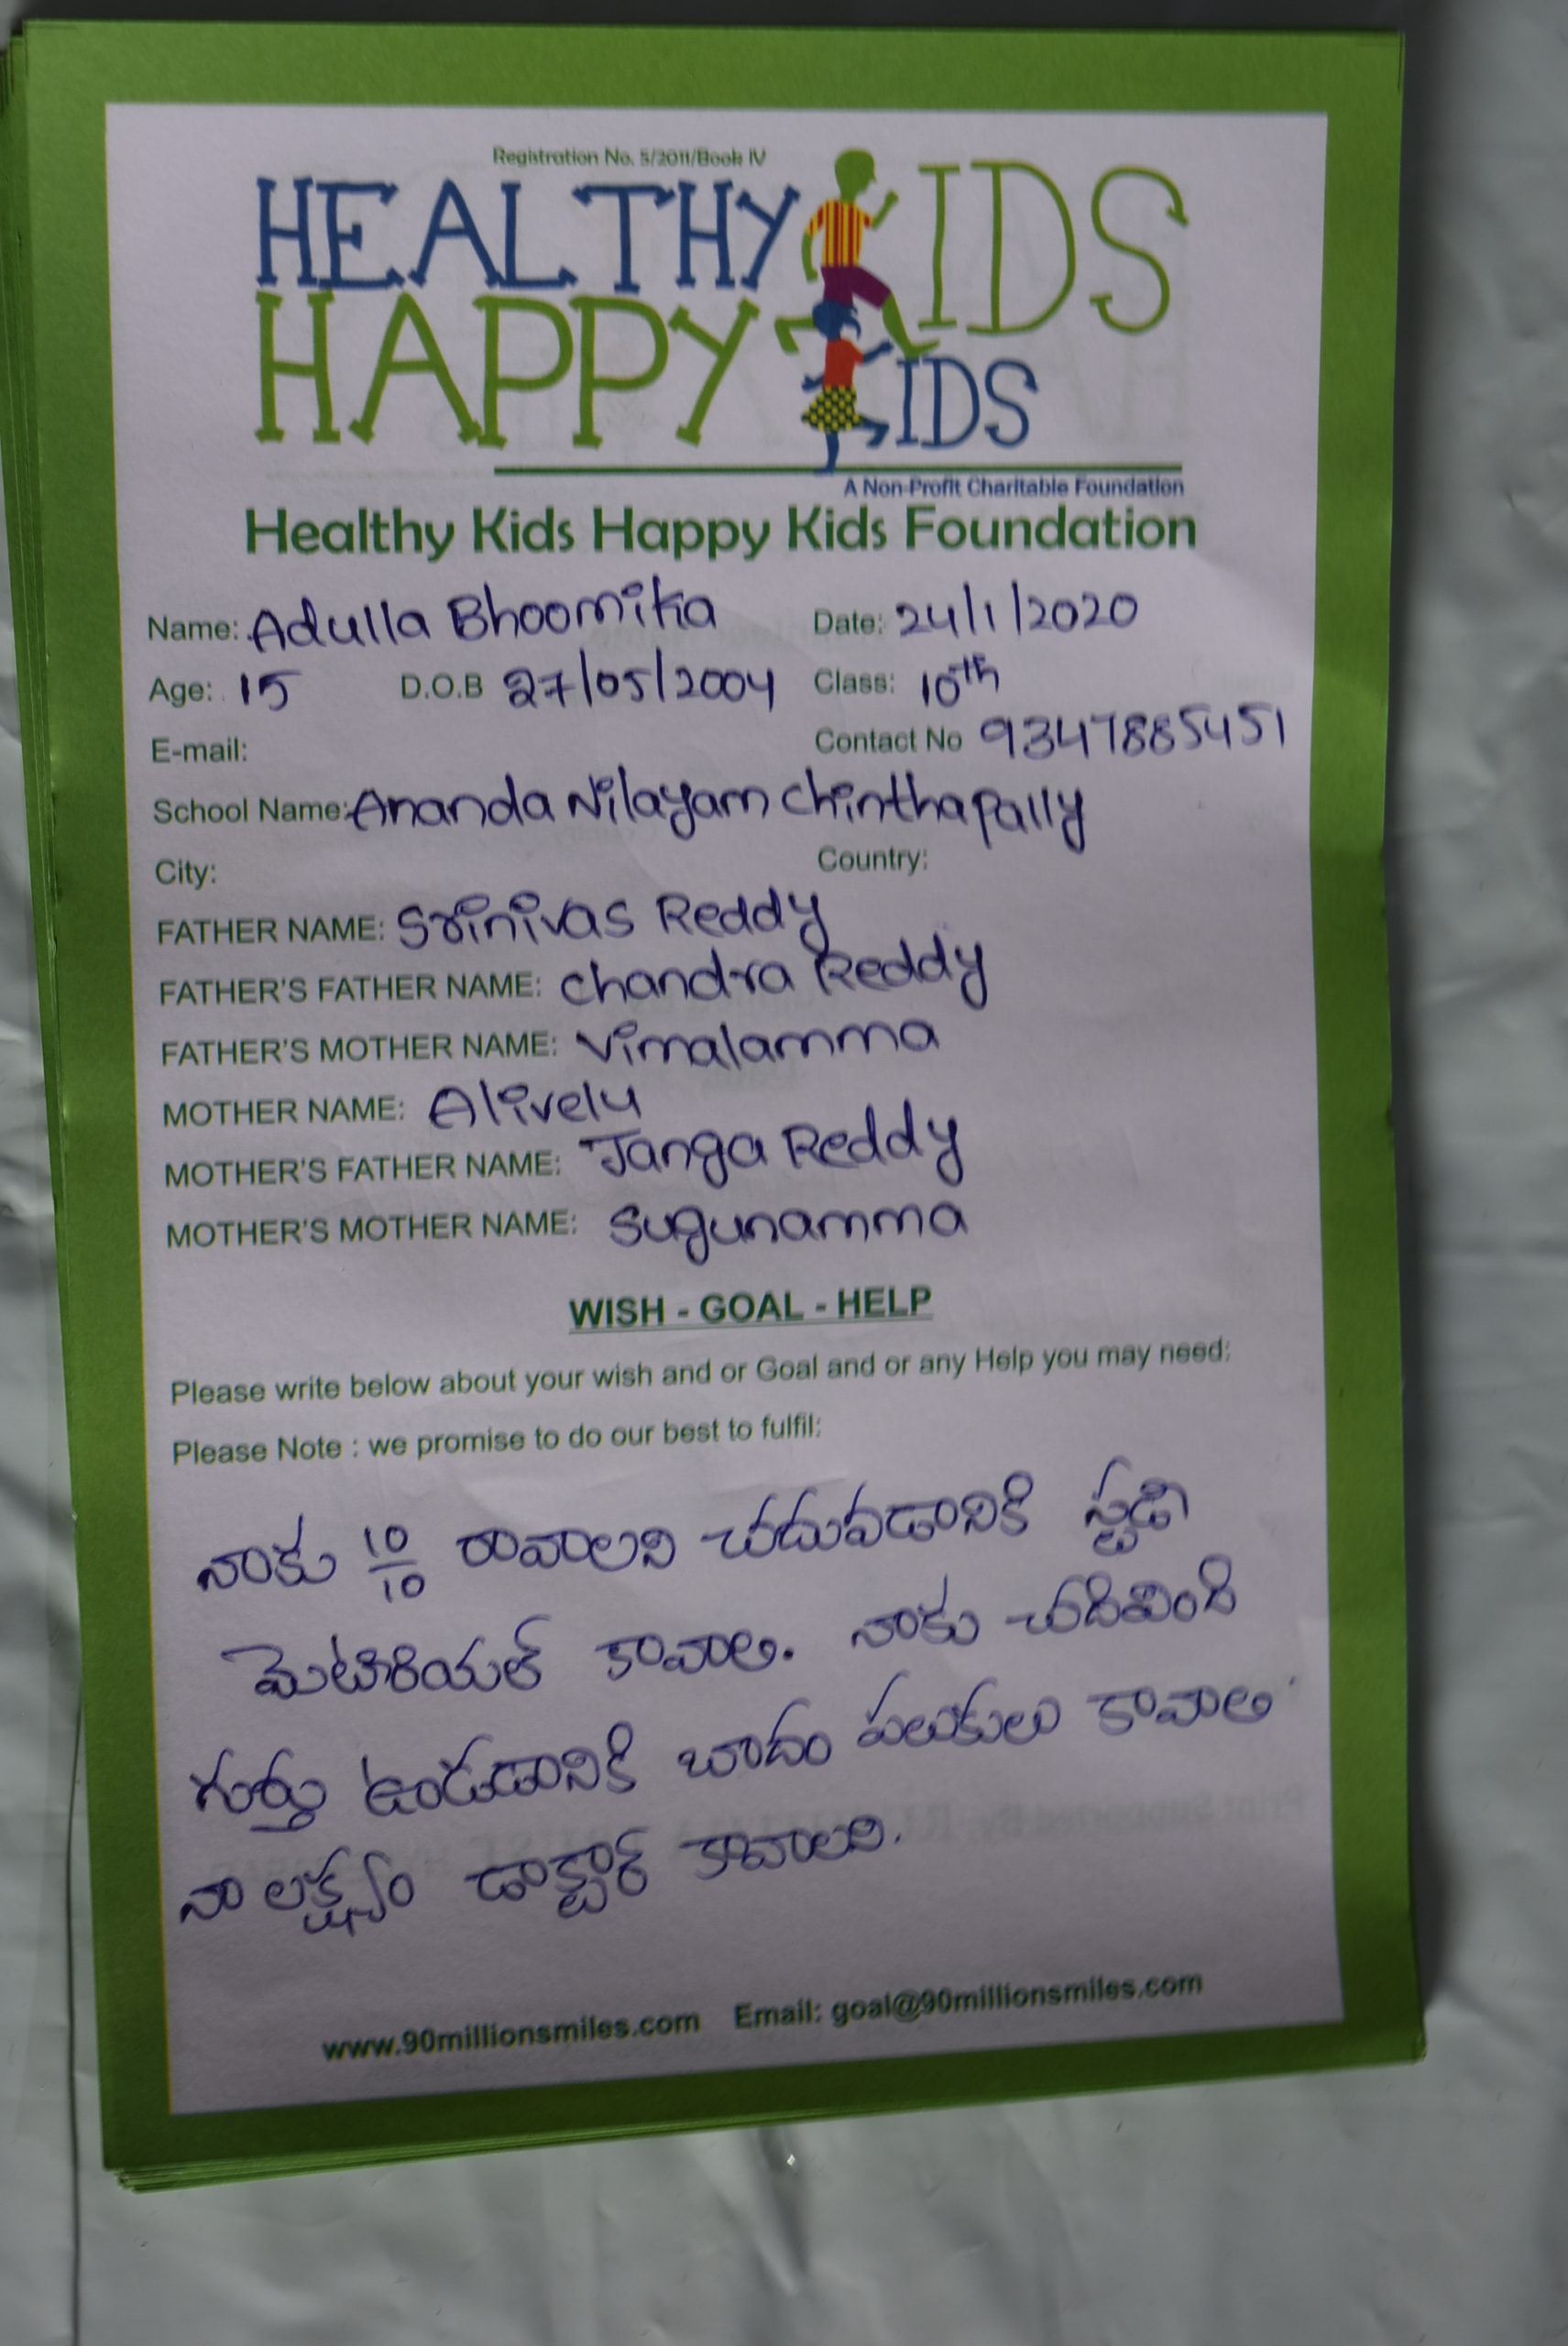 Registration No. 5/2011/Book IV
HEALTHY KIDS
HAPPY KIDS
A Non-Profit Charitable Foundation
Healthy Kids Happy Kids Foundation
Name: Adulla Bhoomika Date: 24/1/2020
Age: 15 D.O.B 27/05/2004 Class: 10th
E-mail: Contact No 9347885451
School Name: Ananda Nilayam Chinthapally
City: Country:
FATHER NAME: Srinivas Reddy
FATHER'S FATHER NAME: Chandra Reddy
FATHER'S MOTHER NAME: Vimalamma
MOTHER NAME: Alivelu
MOTHER'S FATHER NAME: Janga Reddy
MOTHER'S MOTHER NAME: Sugunamma
WISH - GOAL - HELP
Please write below about your wish and or Goal and or any Help you may need:
Please Note : we promise to do our best to fulfil:
నాకు 10/10 రావాలని చదువడానికి స్టడి
మెటిరియల్ కావాలి. నాకు చదివింది
గుర్తు ఉండడానికి బాదం పలుకులు కావాలి
నా లక్ష్యం డాక్టార్ కావాలని.
www.90millionsmiles.com Email: goal@90millionsmiles.com